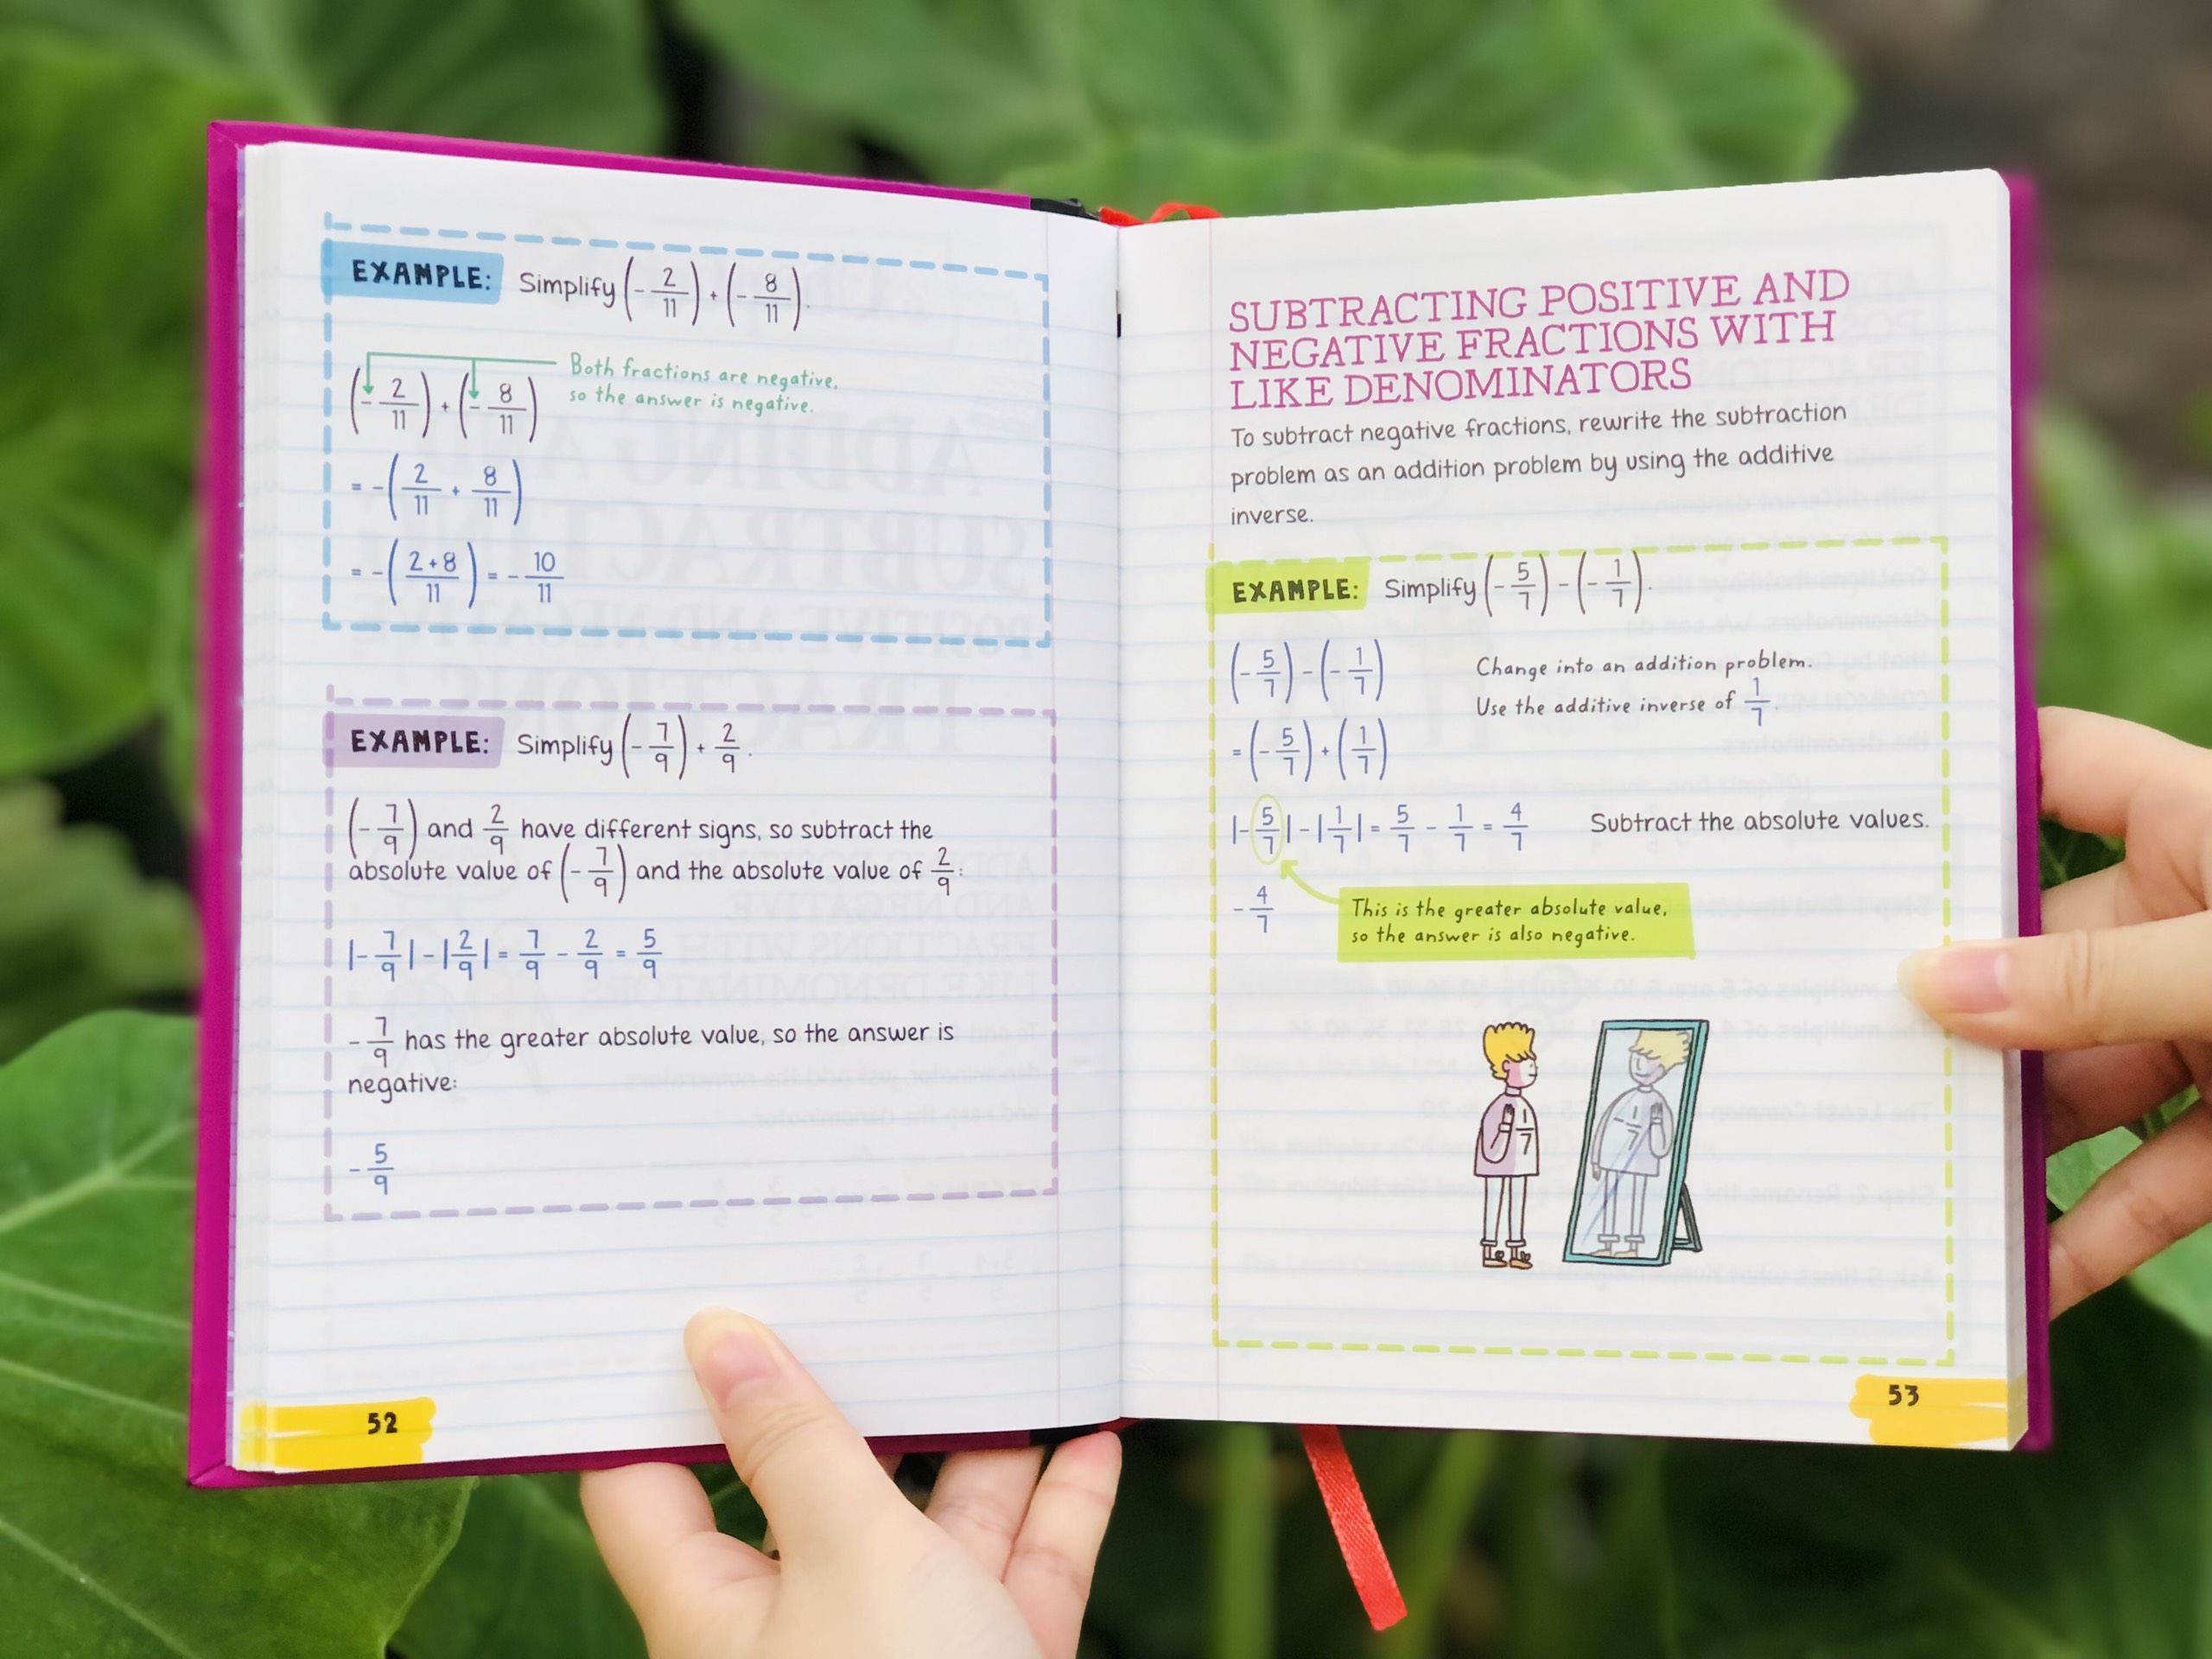 EXAMPLE: Simplify (-2/11) + (-8/11).
Both fractions are negative,
so the answer is negative.
(-2/11) + (-8/11)
= -(2/11 + 8/11)
= -((2+8)/11) = -10/11
EXAMPLE: Simplify (-7/9) + 2/9.
(-7/9) and 2/9 have different signs, so subtract the
absolute value of (-7/9) and the absolute value of 2/9:
|-7/9| - |2/9| = 7/9 - 2/9 = 5/9
-7/9 has the greater absolute value, so the answer is
negative:
-5/9
52
SUBTRACTING POSITIVE AND
NEGATIVE FRACTIONS WITH
LIKE DENOMINATORS
To subtract negative fractions, rewrite the subtraction
problem as an addition problem by using the additive
inverse.
EXAMPLE: Simplify (-5/7) - (-1/7).
(-5/7) - (-1/7) Change into an addition problem.
Use the additive inverse of 1/7.
= (-5/7) + (1/7)
|-5/7| - |1/7| = 5/7 - 1/7 = 4/7 Subtract the absolute values.
-4/7
This is the greater absolute value,
so the answer is also negative.
1/7
-1/7
53